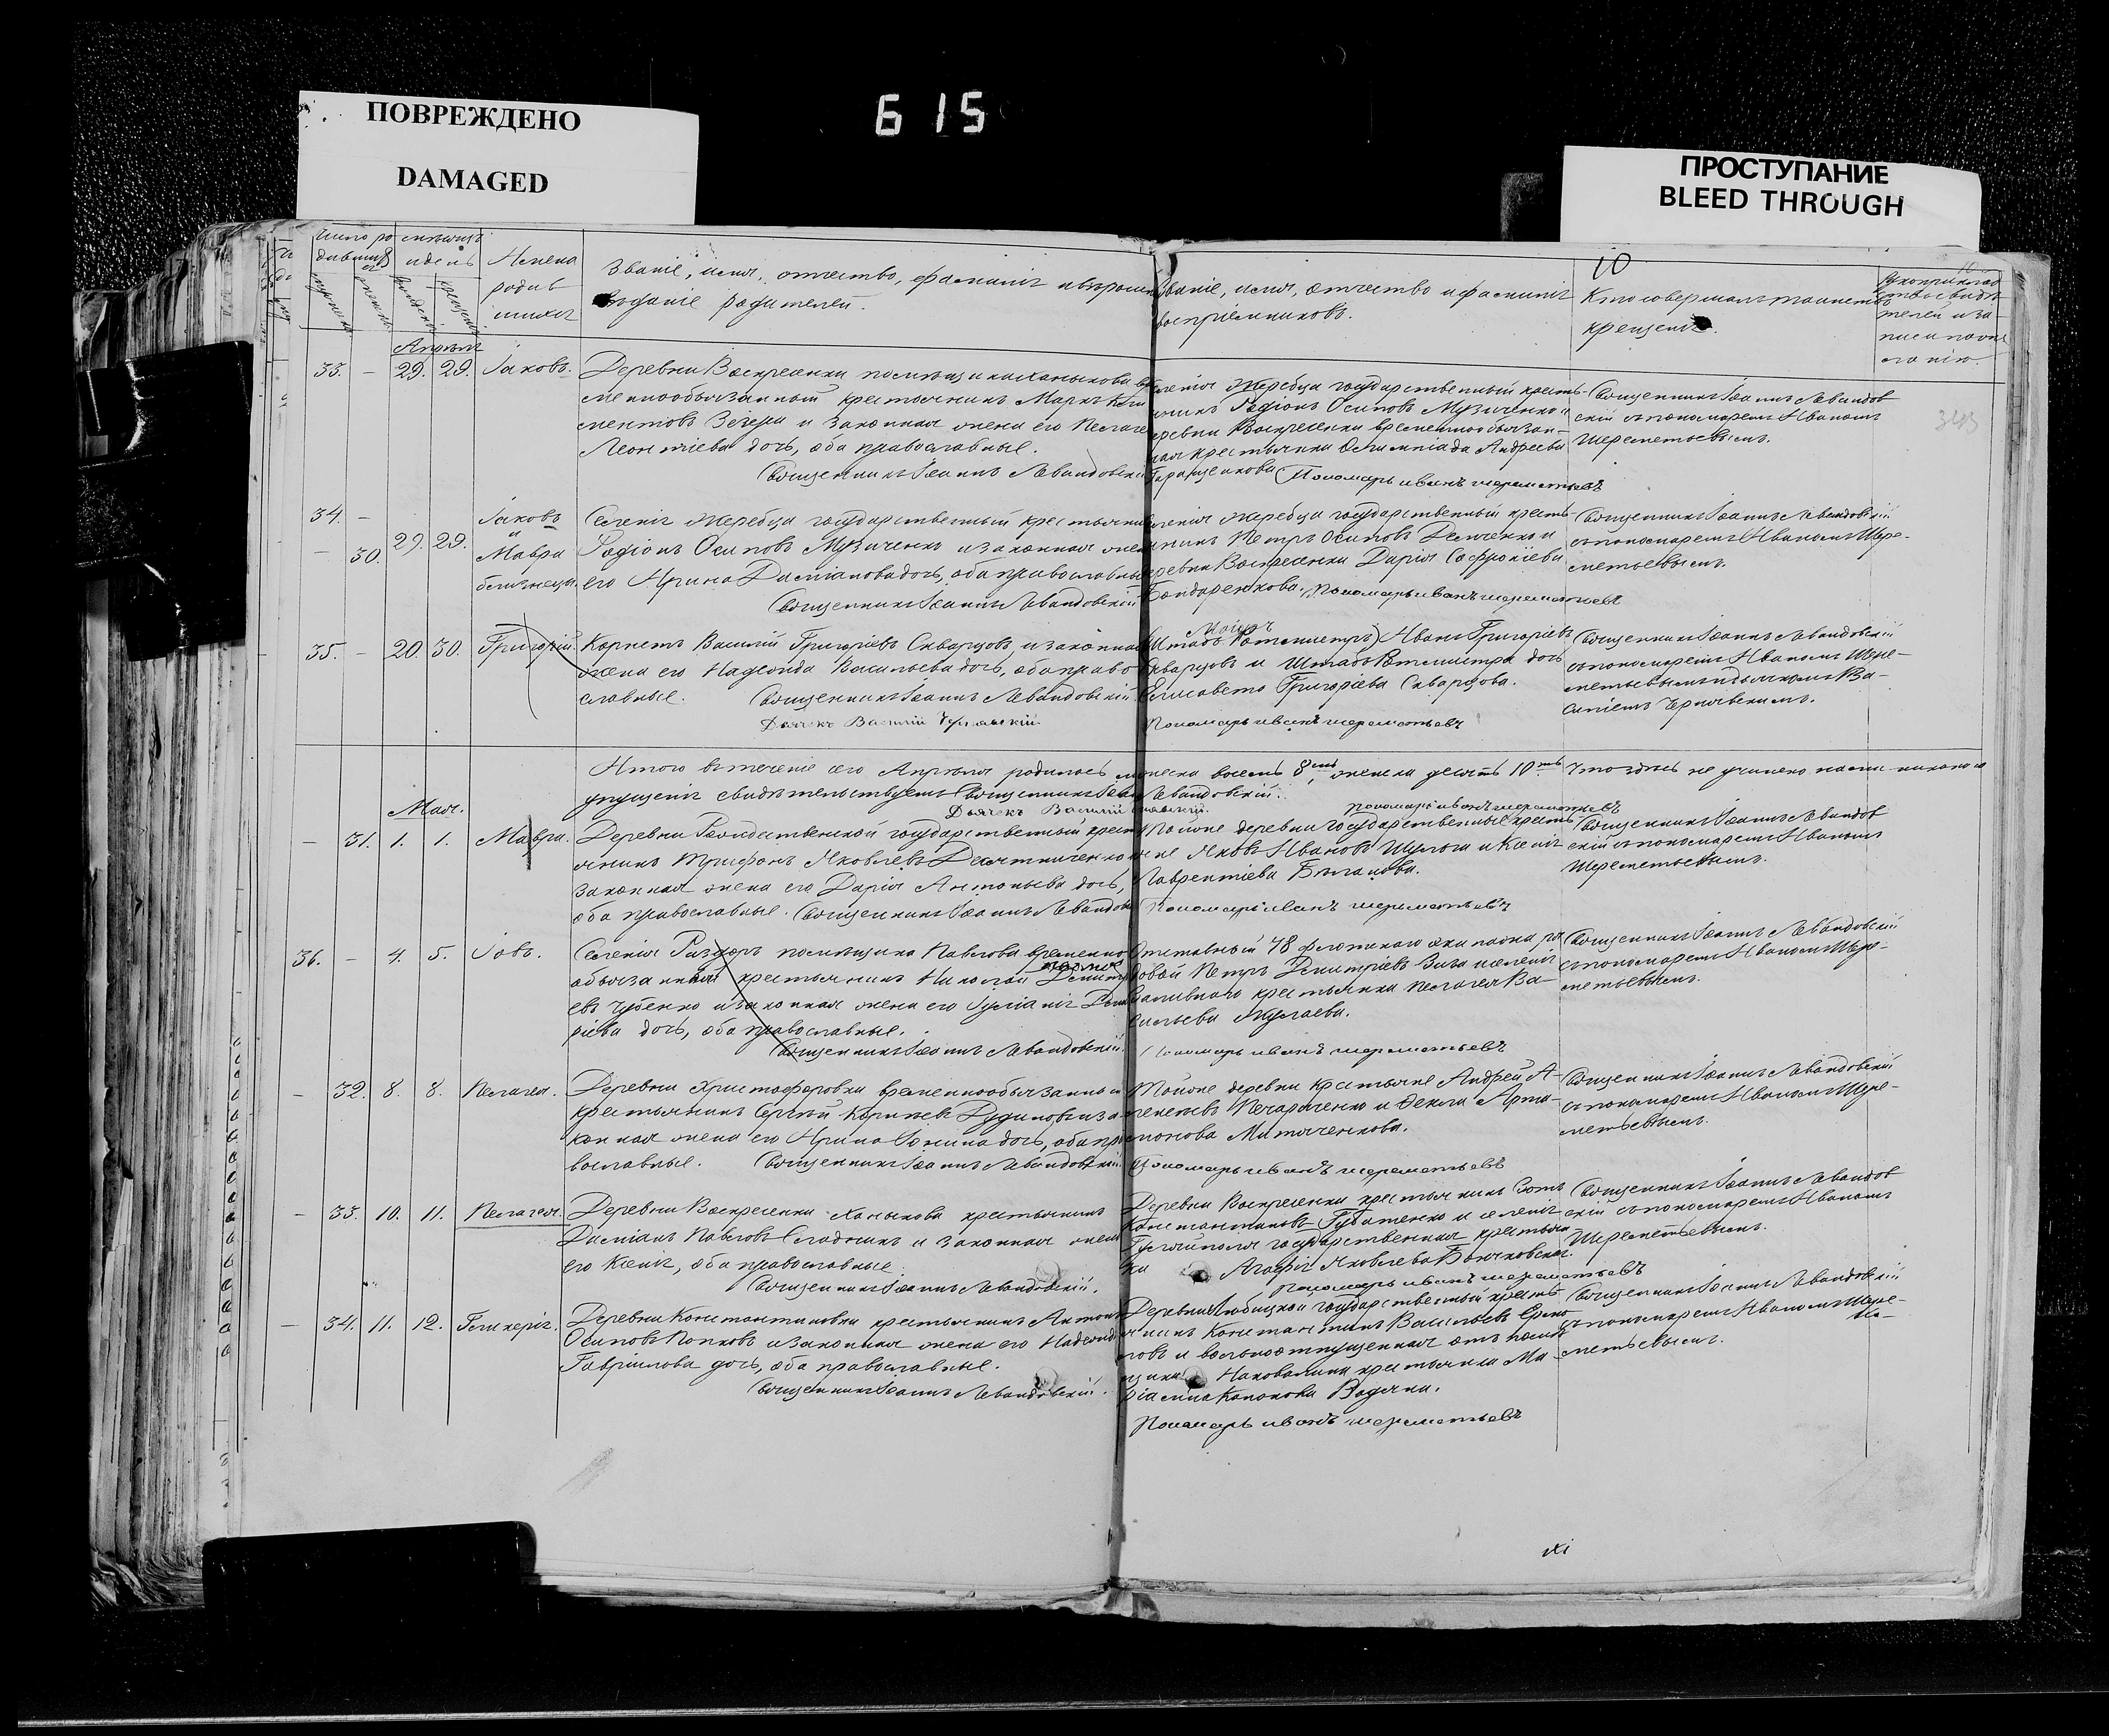 ПОВРЕЖДЕНО
DAMAGED
615
ПРОСТУПАНИЕ
BLEED THROUGH
число ро
дившихся
мѣсяцъ
и день
Имена
родив
шихся
Званіе, имя, отчество, фамилія
вѣданіе родителей.
Званіе, имя, отчество и фамилія
воспріемниковъ.
10
Кто совершалъ таинство
крещенія.
Рукоприклад
ство свидѣ
телей и за
писи
Апрѣль
33. — 29. 29. Іаковъ.
Деревни Воскресенки помѣщика Ханыкова вре
меннообязанный крестьянинъ Маркъ Кли
ментовъ и законная жена его Пелаге
Леонтіева дочь, оба православные.
Священникъ Іоаннъ Левандовскій
селенія Жеребца государственный кресть-
янинъ Родіонъ Осиповъ Музиченко и
деревни Воскресенки временнообязан-
ная крестьянка Олимпіада Андреева
Геращенкова Пономарь иванъ шереметьевъ
Священникъ Іоаннъ Левандов
скій съ пономаремъ Иваномъ
Шереметьевымъ.
343
34. — Іаковъ
и
— 30. 29. 29. Мавра
близнецы.
Селенія Жеребца государственный крестьянинъ
Родіонъ Осиповъ Музиченко и законная жена
его Ирина Даміанова дочь, оба православные
Священникъ Іоаннъ Левандовскій
селенія Жеребца государственный кресть-
янинъ Петръ Осиповъ Демченко и
деревни Воскресенки Дарія Софроніева
Бондаренкова. Пономарь иванъ шереметьевъ
Священникъ Іоаннъ Левандовскій
съ пономаремъ Иваномъ Шере-
метьевымъ.
35. — 20. 30. Григорій.
Корнетъ Василій Григоріевъ Скварцовъ, и законная
жена его Надежда Васильева дочь, оба право
славные. Священникъ Іоаннъ Левандовскій
Дьячекъ Василій Чернявскій
Маіоръ
Штабъ Ротмистръ Иванъ Григоріевъ
Скварцовъ и Штабъ Ротмистра дочь
Елисавета Григоріева Скварцова.
Пономарь иванъ шереметьевъ
Священникъ Іоаннъ Левандовскій
съ пономаремъ Иваномъ Шере-
метьевымъ и дьячкомъ Ва-
силіемъ Чернявскимъ.
Итого въ теченіе сего Апрѣля родилось мужеска восемь 8мь, женска десять 10ть. Что здѣсь не учинено нами никакого
упущенія свидѣтельствуемъ Священникъ Іоаннъ Левандовскій.
Дьячекъ Василій Чернявскій.
пономарь иванъ шереметьевъ
Май.
— 31. 1. 1. Мавра.
Деревни Рождественской государственный кресть
янинъ Трифонъ Яковлевъ Десятниченко и
законная жена его Дарія Антоньева дочь,
оба православные. Священникъ Іоаннъ Левандовс
Тойже деревни государственные кресть-
яне Яковъ Ивановъ Шульга и Ксенія
Лаврентіева Бѣланова.
Пономарь иванъ шереметьевъ
Священникъ Іоаннъ Левандов
скій съ пономаремъ Иваномъ
Шереметьевымъ.
36. — 4. 5. Іовъ.
Селенія Раздоръ помѣщика Павлова временно
обязанный крестьянинъ Николай Дмитрі
евъ Чубенко и законная жена его Іуліанія Дми
ріева дочь, оба православные.
Священникъ Іоаннъ Левандовскій.
Отставной 48 флотскаго экипажа ря
довой Петръ Димитріевъ и селенія
Заливнаго крестьянка Пелагея Ва-
сильева
Пономарь иванъ шереметьевъ
Священникъ Іоаннъ Левандовскій
съ пономаремъ Иваномъ Шере-
метьевымъ.
— 32. 8. 8. Пелагея.
Деревни Христофоровки временнообязанный
крестьянинъ Сергѣй и за
конная жена его Ирина дочь, оба пра
вославные. Священникъ Іоаннъ Левандовскій
Тойже деревни крестьяне Андрей А-
и Фекла Арта-
монова Митяченкова.
Пономарь иванъ шереметьевъ
Священникъ Іоаннъ Левандовскій
съ пономаремъ Иваномъ Шере-
метьевымъ.
— 33. 10. 11. Пелагея.
Деревни Воскресенки Ханыкова крестьянинъ
Даміанъ Павловъ и законная жена
его Ксенія, оба православные.
Священникъ Іоаннъ Левандовскій.
Деревни Воскресенки крестьянинъ Зотъ
Константиновъ Губатенко и селенія
Гуляйполя государственная крестьян
ка Агафія Яковлева
Пономарь иванъ шереметьевъ
Священникъ Іоаннъ Левандов
скій съ пономаремъ Иваномъ
Шереметьевымъ.
— 34. 11. 12. Гликерія.
Деревни Константиновки крестьянинъ Антонъ
Осиповъ Попковъ и законная жена его Надежда
Гавріилова дочь, оба православные.
Священникъ Іоаннъ Левандовскій.
Деревни Любицкой государственный кресть
янинъ Константинъ Васильевъ
и вольноотпущенная отъ помѣ
щика крестьянка Ма
Пономарь иванъ шереметьевъ
Священникъ Іоаннъ Левандовскій
съ пономаремъ Иваномъ Шере-
метьевымъ.